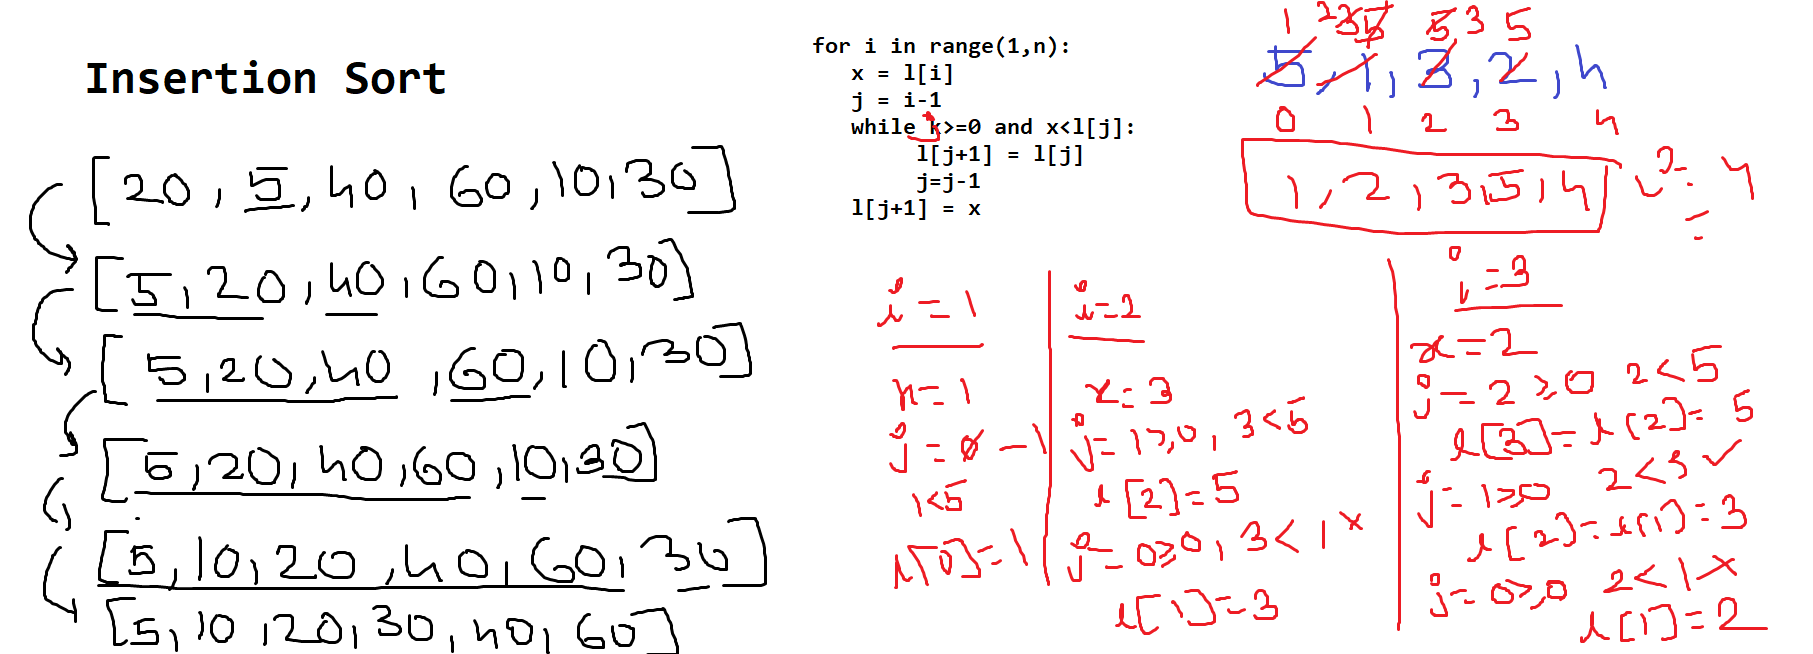 Insertion Sort
[20, 5, 40, 60, 10, 30]
[5, 20, 40, 60, 10, 30]
[5, 20, 40, 60, 10, 30]
[5, 20, 40, 60, 10, 30]
[5, 10, 20, 40, 60, 30]
[5, 10, 20, 30, 40, 60]
for i in range(1,n):
x = l[i]
j = i-1
while k>=0 and x<l[j]:
j
l[j+1] = l[j]
j=j-1
l[j+1] = x
1 2 3 5 5 3 5
5, 1, 3, 2, 4
0 1 2 3 4
1, 2, 3, 5, 4
i = 4
i = 1
x = 1
j = 0 -1
1<5
l[0] = 1
i=2
x = 3
j = 1>,0, 3<5
l[2] = 5
j = 0≥0, 3<1 x
l[1] = 3
i=3
x = 2
j = 2 ≥0 2<5
l[3] = l[2] = 5
2<3 ✓
j = 1≥0
l[2] = l[1] = 3
j = 0≥0 2<1 x
l[1] = 2